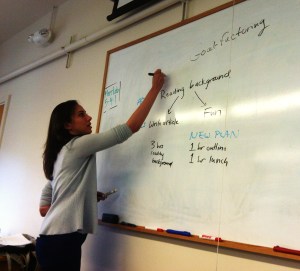 Goal factoring
Reading background
Fun
Write article
3 hrs
reading
background
NEW PLAN
1 hr outline
1 hr launch